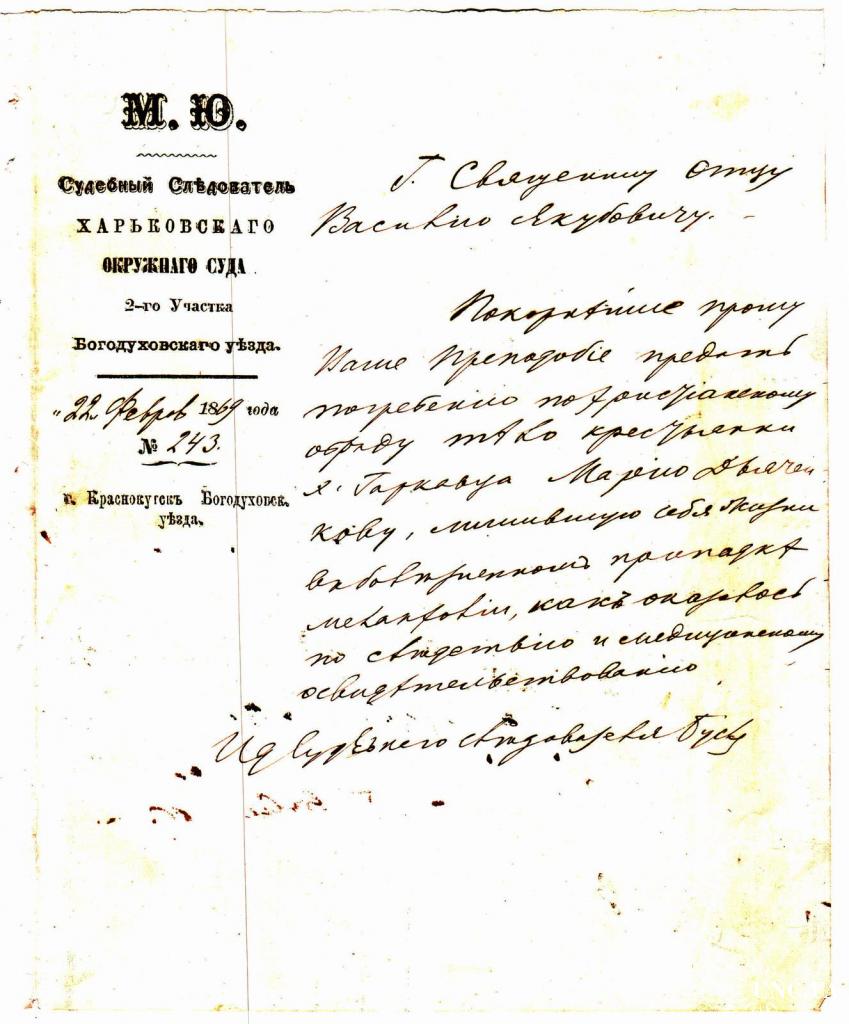 М. Ю.
Судебный Слѣдователь
ХАРЬКОВСКАГО
ОКРУЖНАГО СУДА
2-го Участка
Богодуховскаго уѣзда.
„22„ Февр 1869 года
№ 243.
г. Краснокутскъ Богодуховск.
уѣзда.
Г. Священнику Отцу
Василію Якубовичу.
Покорнѣйше прошу
Ваше Преподобіе предать
погребенію по христіанскому
обряду тѣло крестьянки
х. Гаркавца Марію Дьячен-
кову, лишившую себя жизни
въ болѣзненномъ припадкѣ
меланхоліи, какъ оказалось
по слѣдствію и медицинскому
освидѣтельствованію
И д Судебнаго слѣдователя